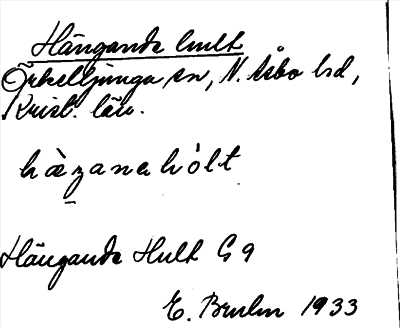 Hängande hult
Örkelljunga sn, N. Åsbo hd,
Krist. län.
hàzanahólt
Hängande Hult G9
E. Bruhn 1933